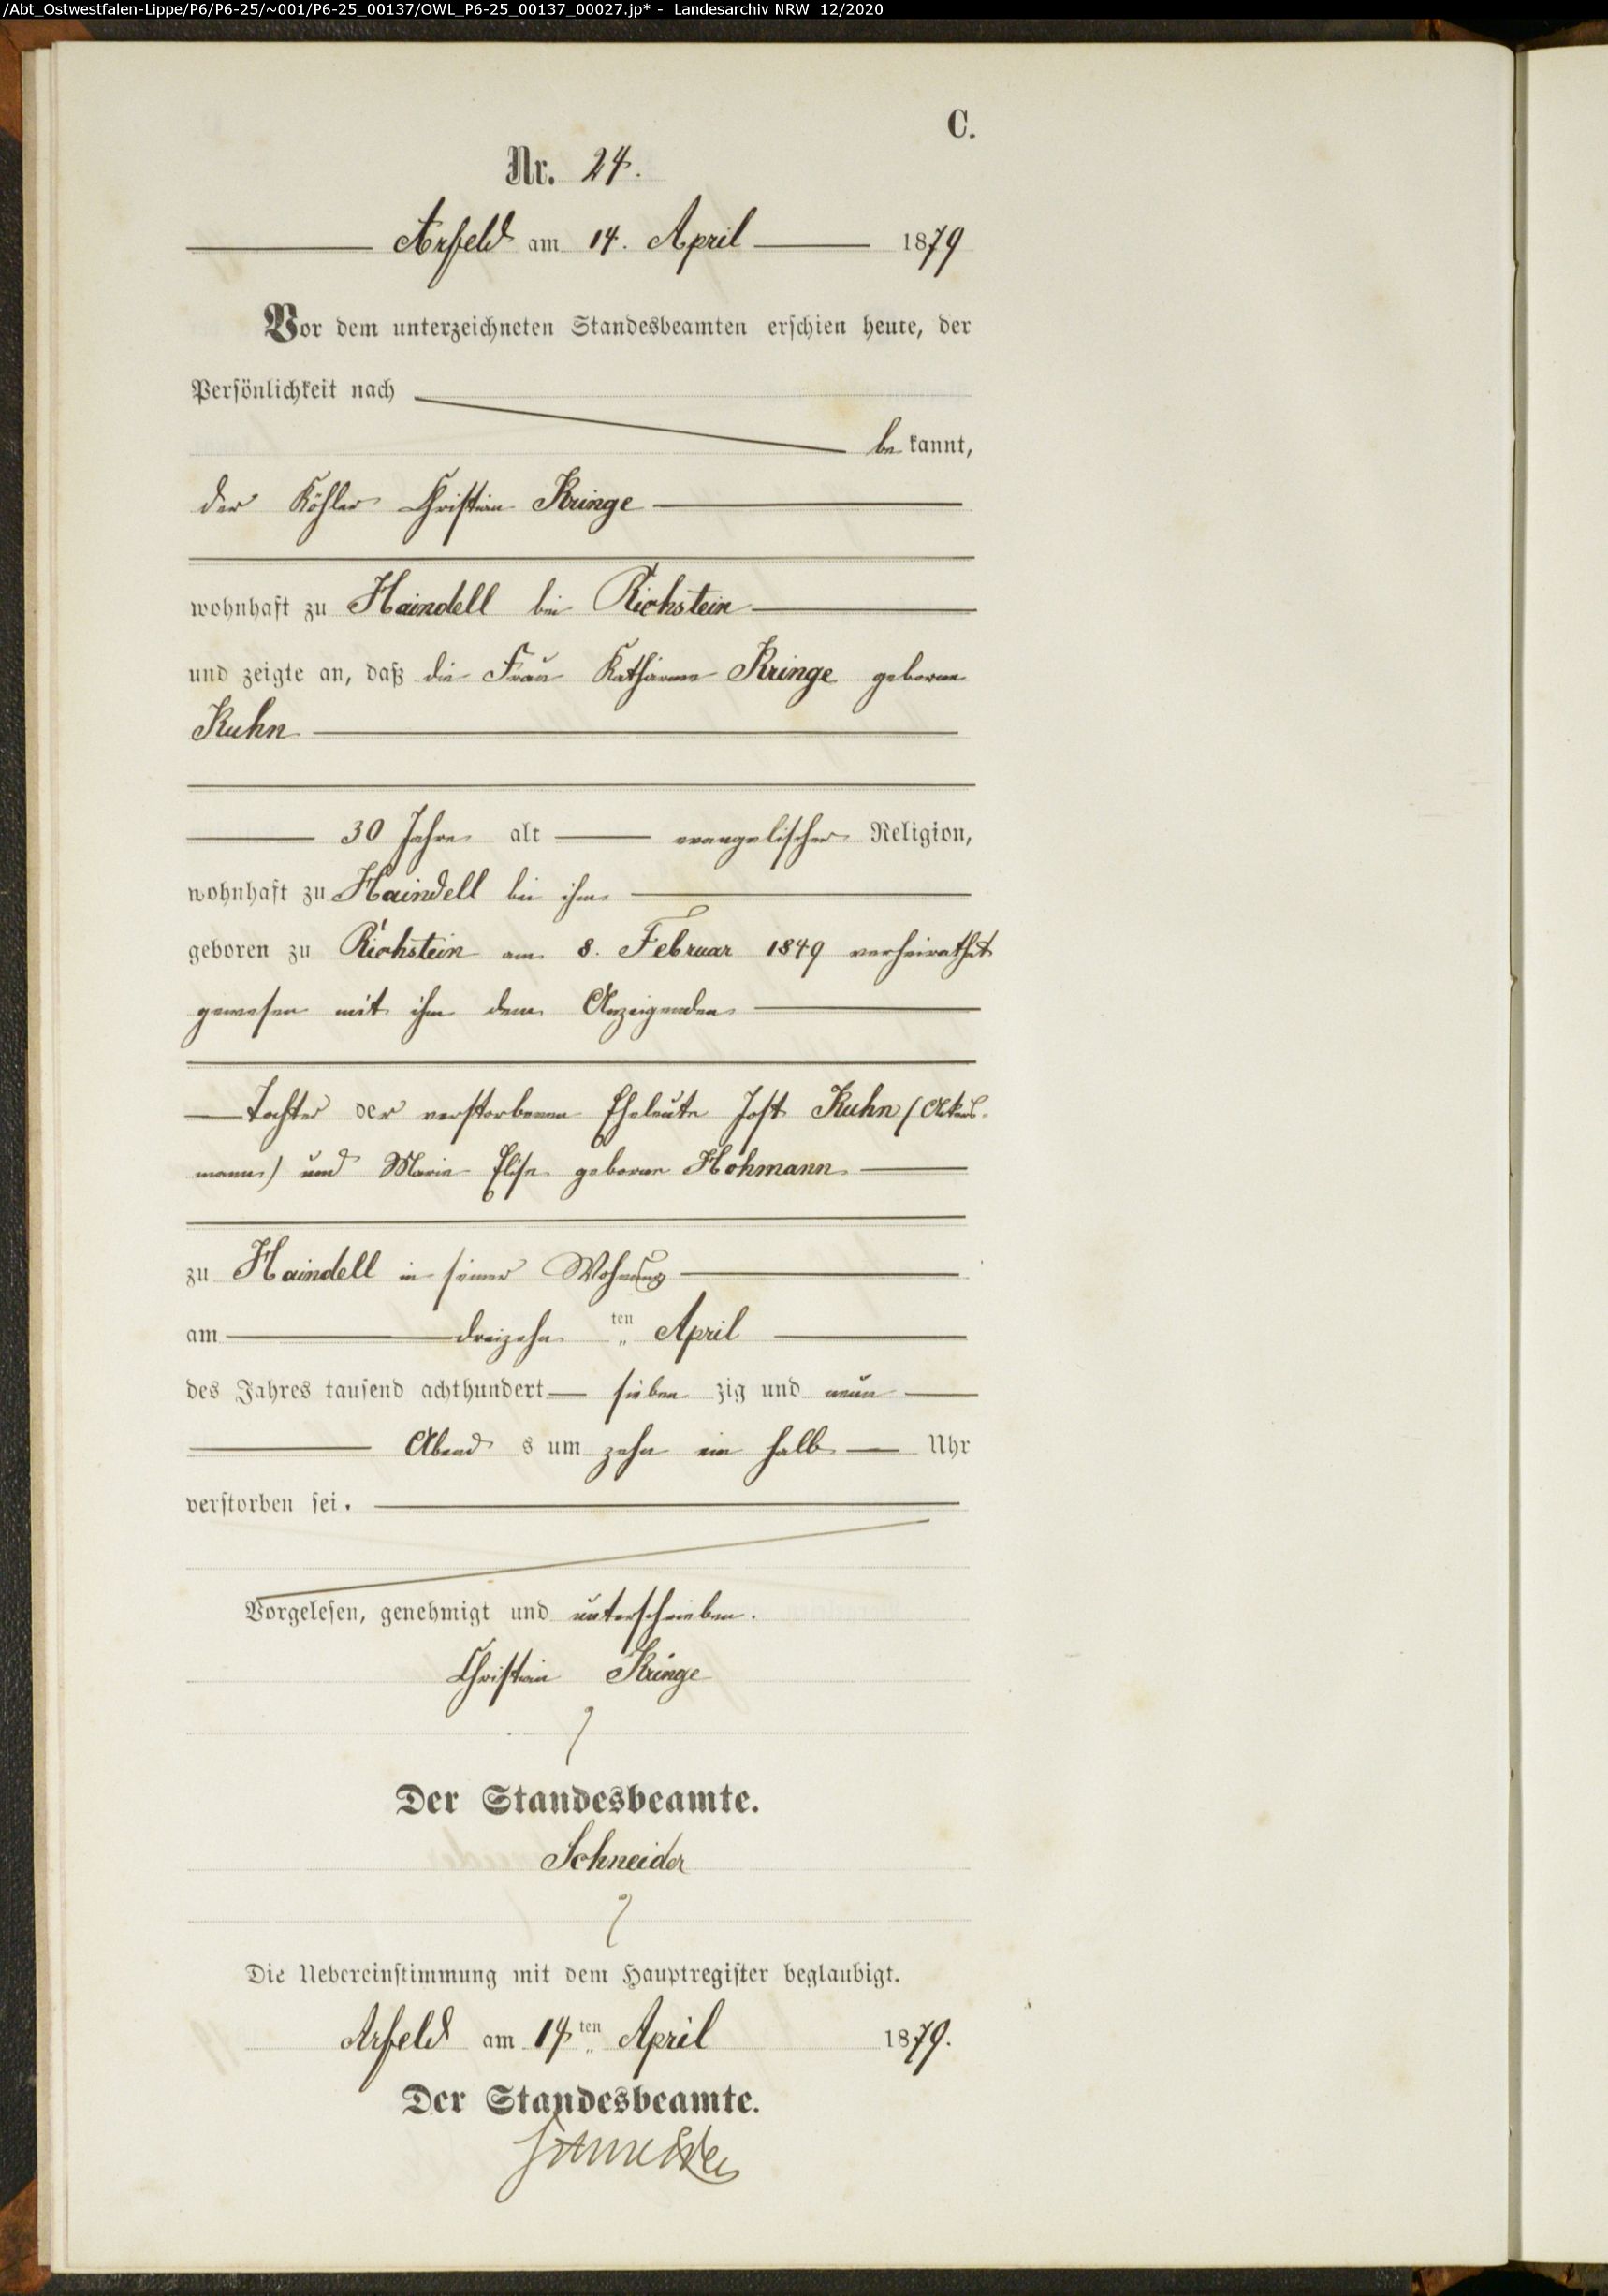 /Abt_Ostwestfalen-Lippe/P6/P6-25/~001/P6-25_00137/OWL_P6-25_00137_00027.jp* - Landesarchiv NRW 12/2020
C.
Nr. 24.
Arfeld am 14. April 1879
Vor dem unterzeichneten Standesbeamten erschien heute, der
Persönlichkeit nach
be kannt,
der Köhler Christian Kringe
wohnhaft zu Haindell bei Richstein
und zeigte an, daß die Frau Katharine Kringe geborne
Kuhn
30 Jahre alt evangelischer Religion,
wohnhaft zu Haindell bei ihm
geboren zu Richstein am 8. Februar 1849 verheirathet
gewesen mit ihm dem Anzeigenden
Tochter der verstorbenen Eheleute Jost Kuhn (Ackers-
mann) und Marie Elise geborne Hohmann
zu Haindell in seiner Wohnung
am dreizehn ten April
des Jahres tausend achthundert sieben zig und neun
Abend s um zehn ein halb Uhr
verstorben sei.
Vorgelesen, genehmigt und unterschrieben.
Christian Kringe
Der Standesbeamte.
Schneider
Die Uebereinstimmung mit dem Hauptregister beglaubigt.
Arfeld am 14ten April 1879.
Der Standesbeamte.
Schneider